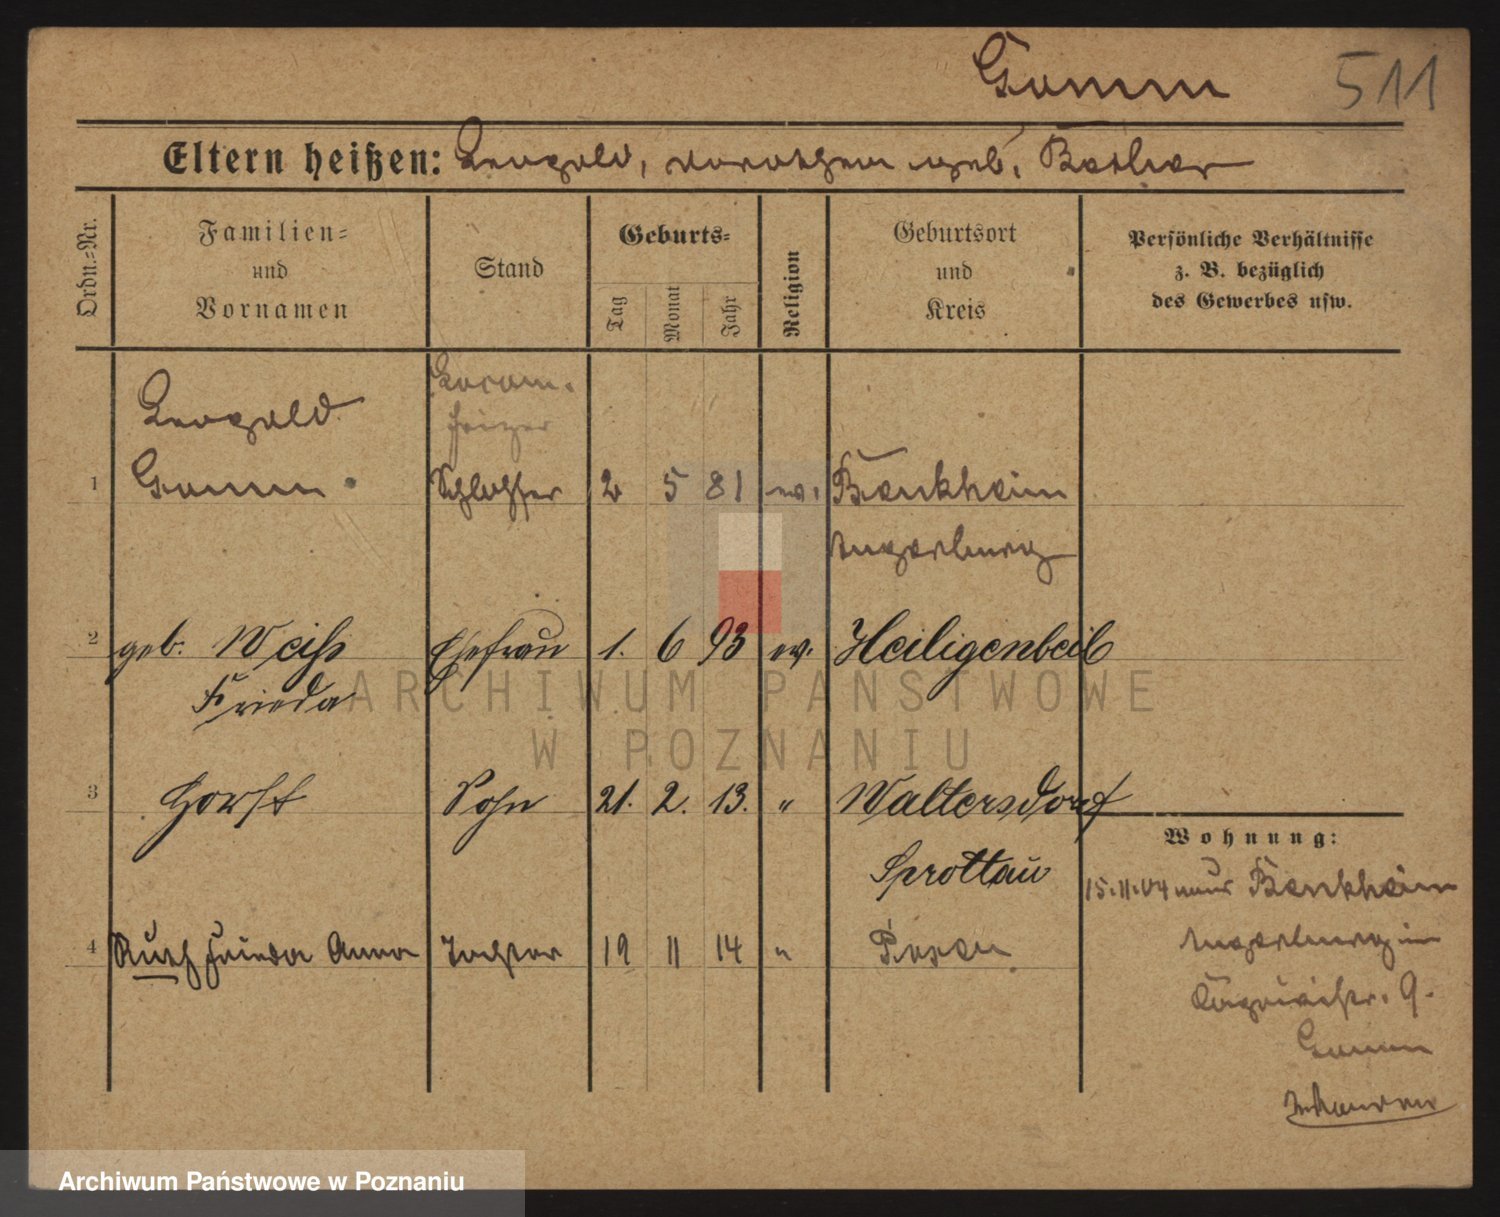 Gomm 511
Eltern heißen: Leopold, Dorothea geb.
Ordn.-Nr.
Familien- und Vornamen
Stand
Geburts-
Tag
Monat
Jahr
Religion
Geburtsort und Kreis
Persönliche Verhältnisse z. B. bezüglich des Gewerbes usw.
Leopold
1 Gomm Schlosser 2 5 81 ev. Benkheim
Angerburg
2 geb. Weiß Ehefrau 1. 6 93 ev. Heiligenbeil
Frieda
3 Horst Sohn 21. 2. 13. " Waltersdorf
Sprottau
4 Ruth Frieda Anna Tochter 19 11 14 " Posen
Wohnung:
15.11.04 Benkheim
Angerburg in
9.
Gomm
ARCHIWUM PAŃSTWOWE
W POZNANIU
Archiwum Państwowe w Poznaniu